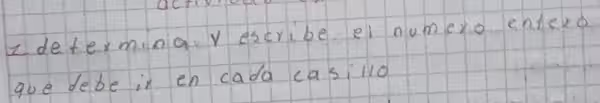 I determina y escribe el numero entero
que debe ir en cada casillo